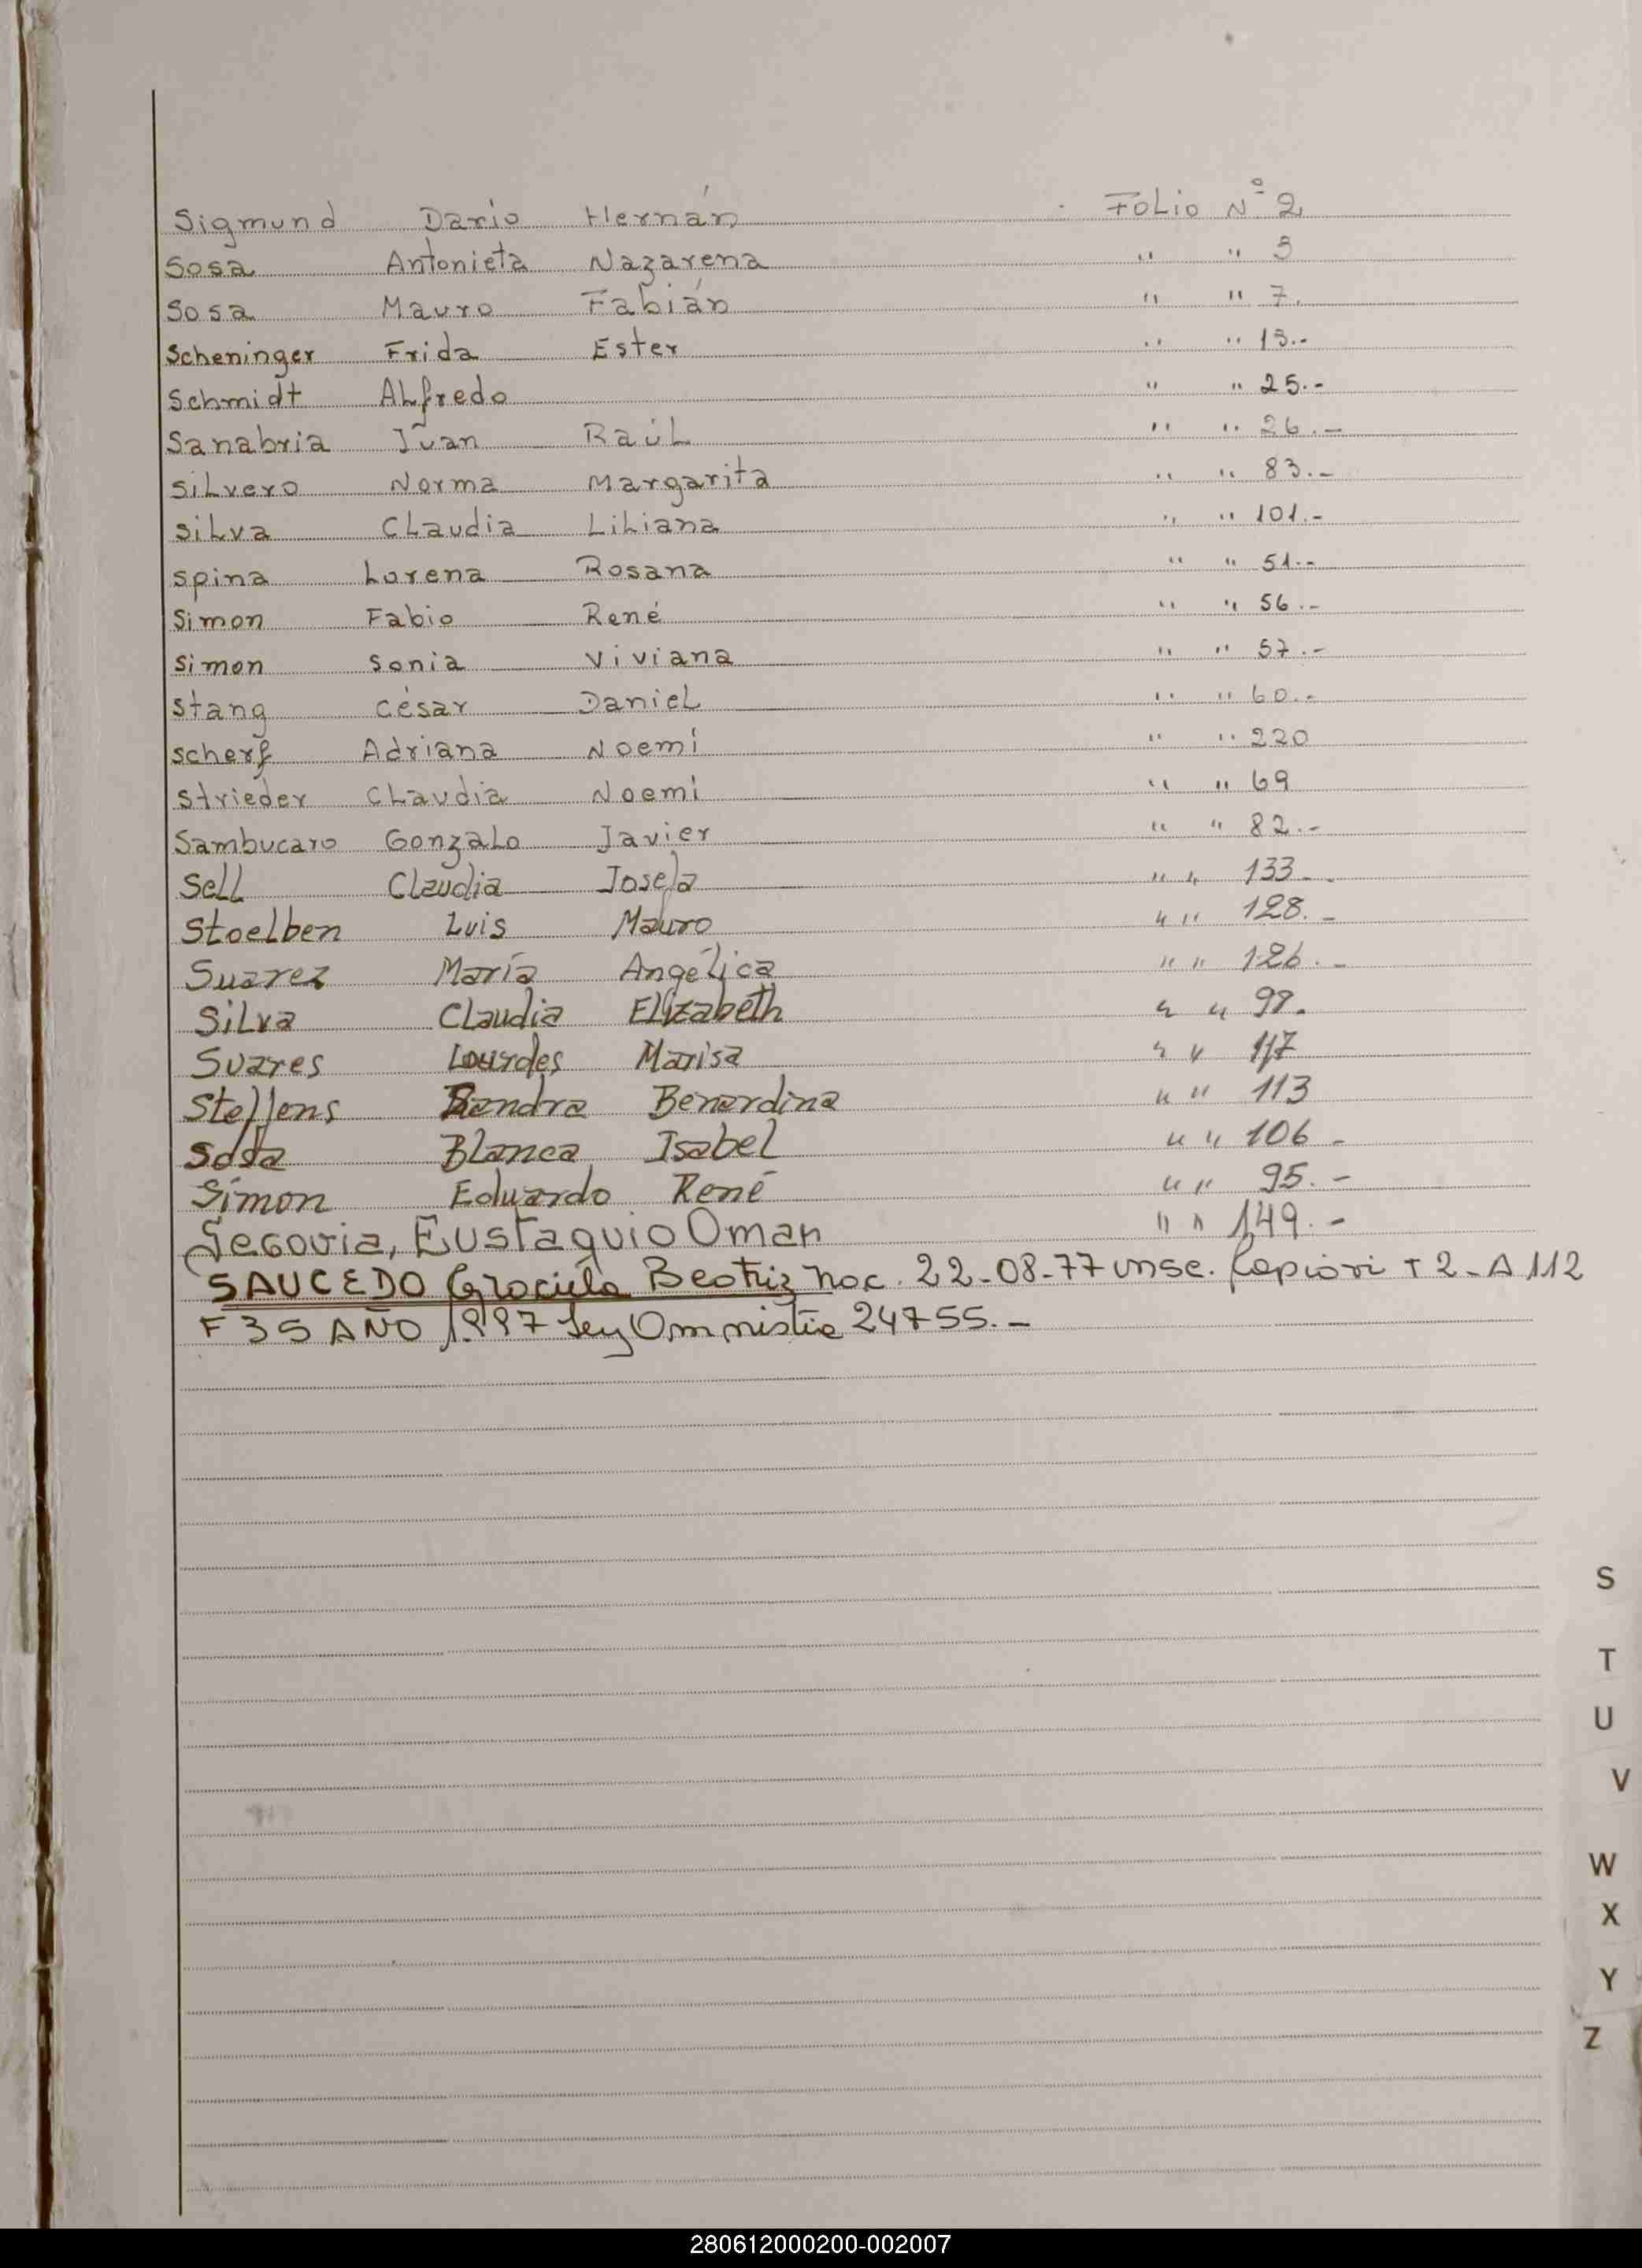 Sigmund Darío Hernán Folio Nº 2
Sosa Antonieta Nazarena " " 5
Sosa Mauro Fabián " " 7.
Scheninger Frida Ester " " 13.-
Schmidt ALfredo " " 25.-
Sanabria Juan RaúL " " 26.-
SiLvero Norma Margarita " " 83.-
SiLva CLaudia LiLiana " " 101.-
Spina Lorena Rosana " " 51.-
Simon Fabio René " " 56.-
Simon Sonia Viviana " " 57.-
Stang César DanieL " " 60.-
Scherf Adriana Noemí " " 220
Strieder CLaudia Noemi " " 69
Sambucaro GonzaLo Javier " " 82.-
Sell Claudia Josefa " " 133.-
Stoelben Luis Mauro " " 128.-
Suarez María Angélica " " 126.-
SiLva Claudia Elizabeth " " 98.
Suares Lourdes Marisa " " 117
Steffens Sandra Benardina " " 113
Sosa Blanca Isabel " " 106-
Simon Eduardo René " " 95.-
Segovia, Eustaquio Omar " " 149.-
SAUCEDO Graciela Beatriz nac. 22-08-77 insc. Capiovi T 2-A 112
F 35 AÑO 1997 Ley Omnistia 24755.-
S
T
U
V
W
X
Y
Z
280612000200-002007